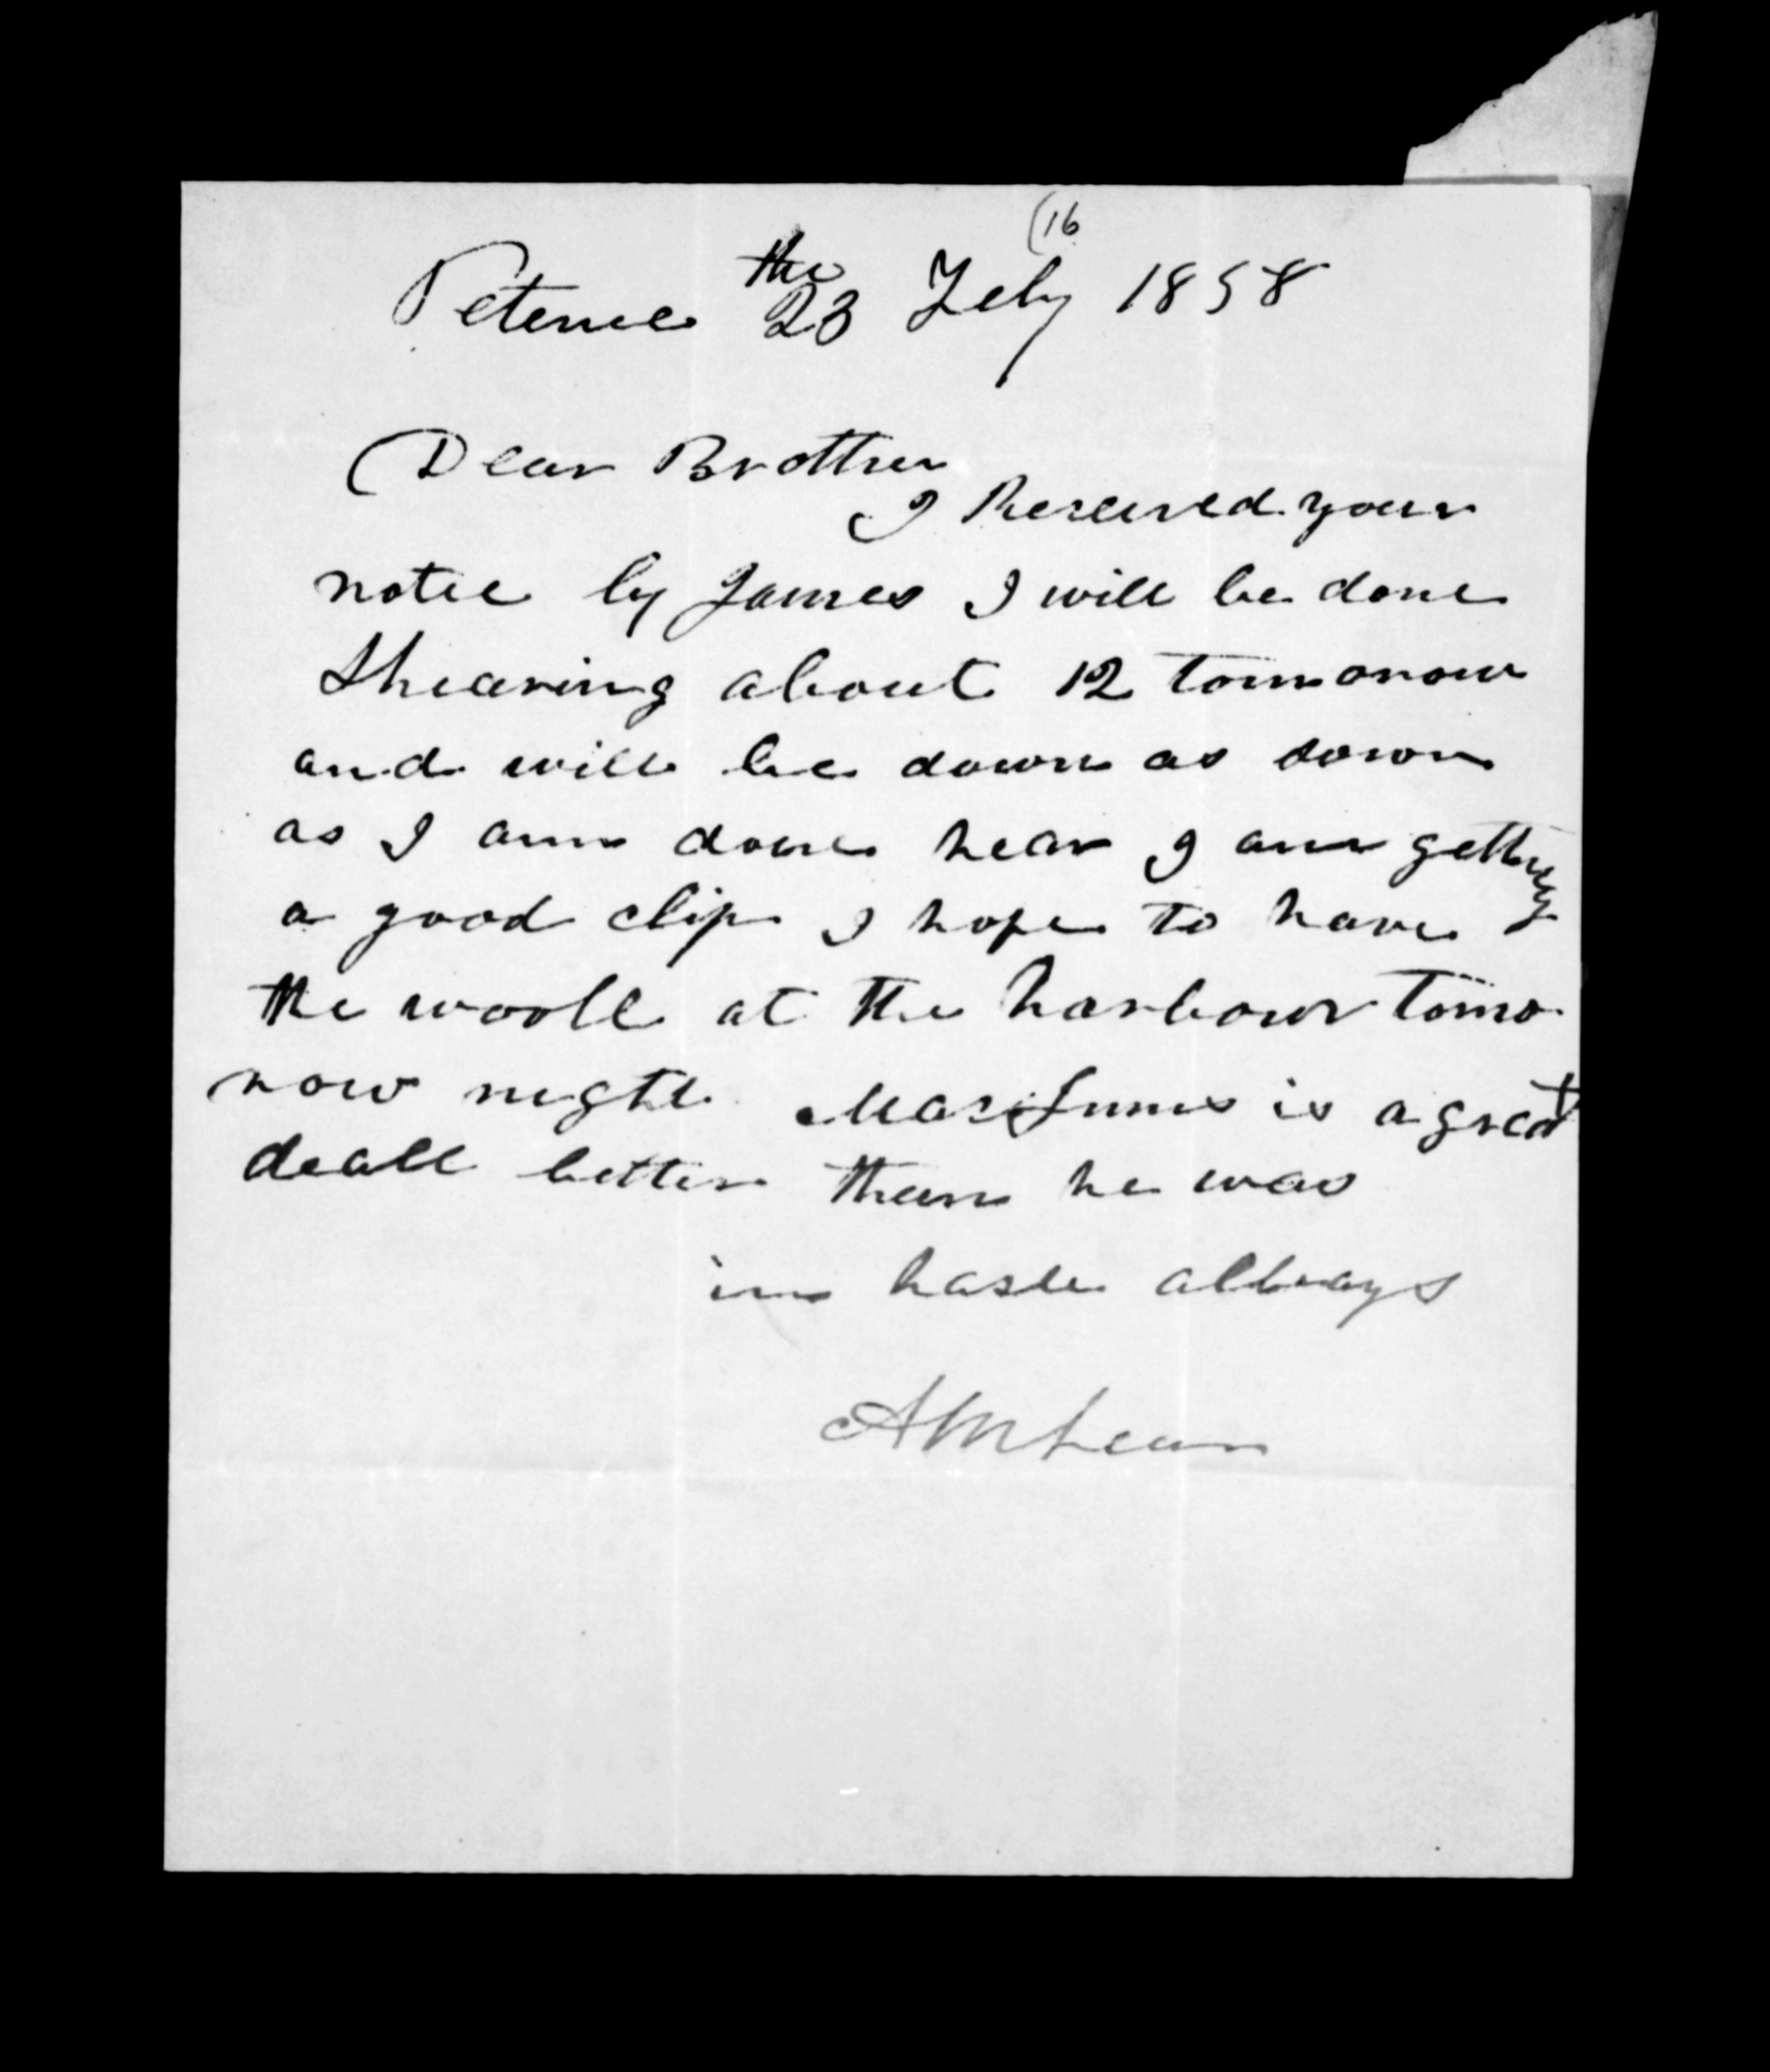 (16
Petenue the 23 Feby 1858
Dear Brother
I Received your
notee by James I will be done
Shearing about 12 tommorow
and will be down as soown
as I am done hear I am getting
a good clip I hope to have
the wooll at the harbour tomo
row night is a great
deall better then he was
in haste allways
AMLean